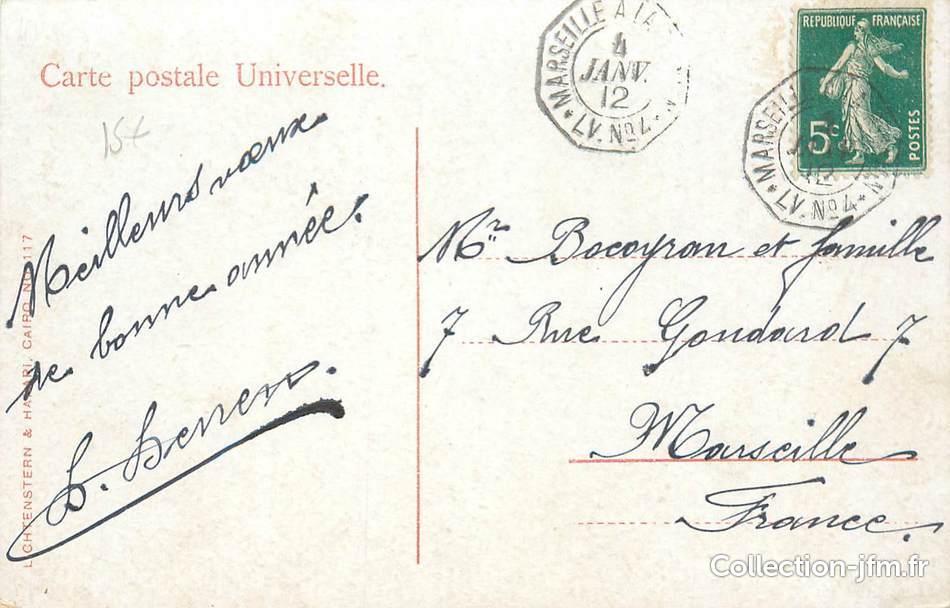 Carte postale Universelle.
15€
Meilleurs vœux
de bonne année.
LICHTENSTERN & HARARI, CAIRO No 117
MARSEILLE A LA
4
JANV.
12
* 17 No 4 *
REPUBLIQUE FRANÇAISE
5c
POSTES
MARSEILLE
12
* 17 No 4 *
Mr et famille
7 Rue Goudard 7
Marseille
France.
Collection-jfm.fr